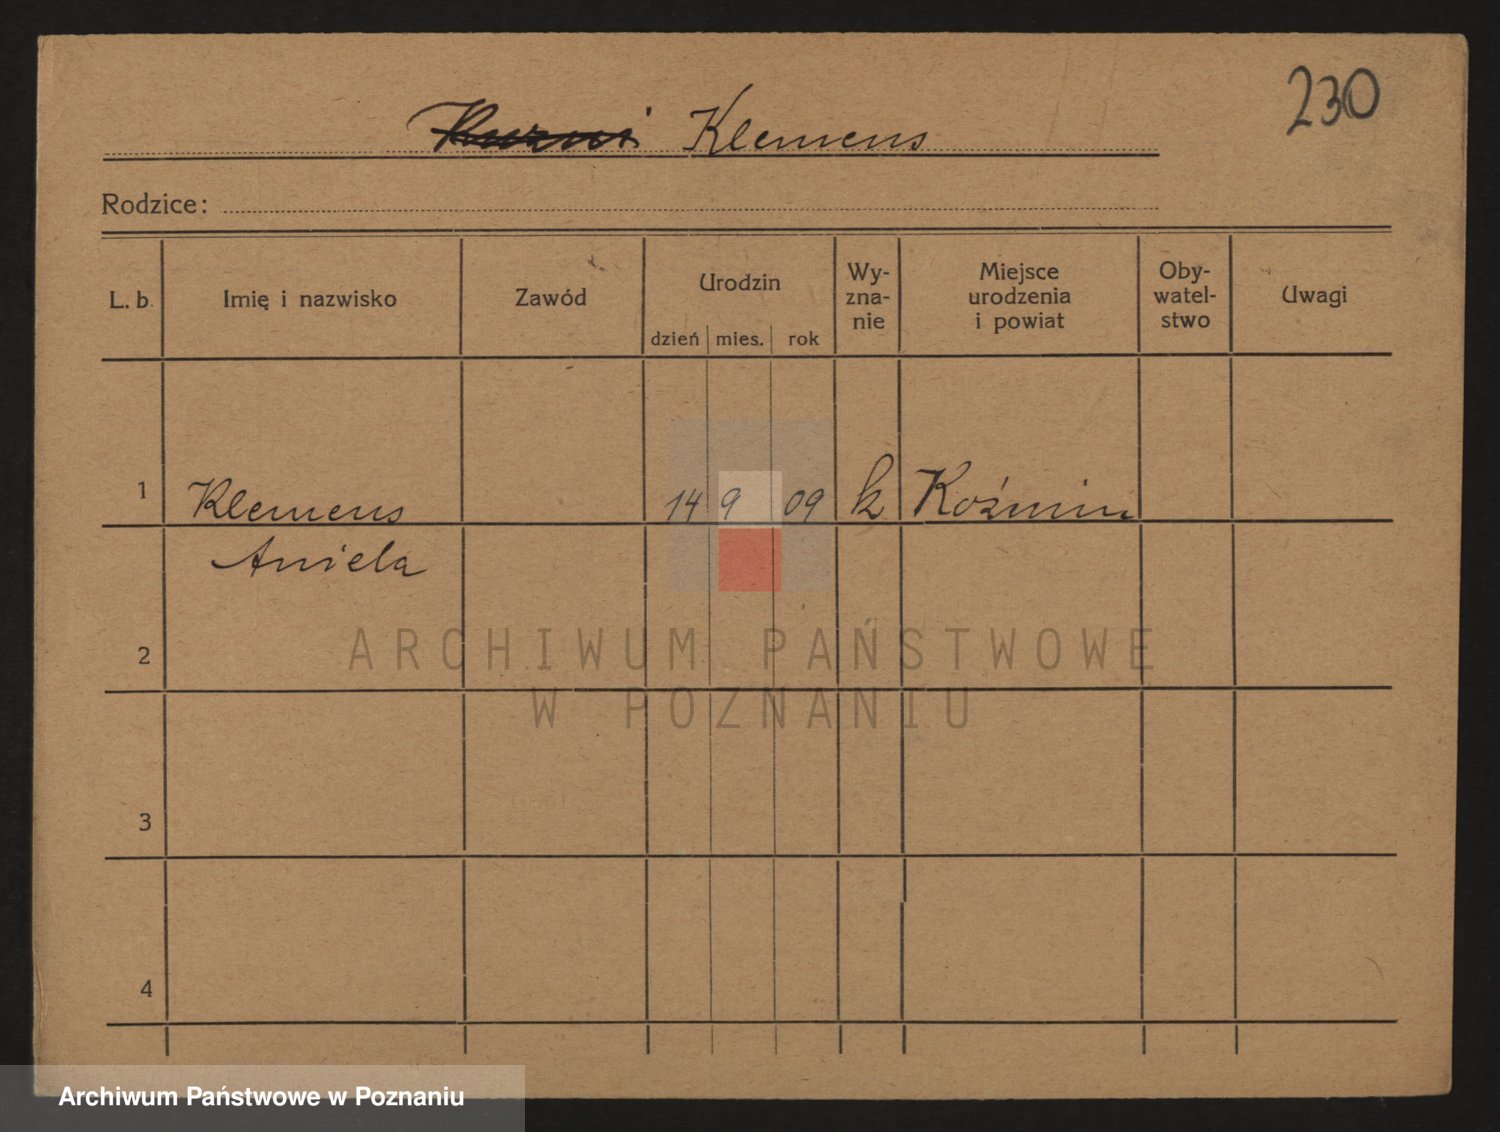 230
Klemens
Rodzice:
L. b. Imię i nazwisko Zawód Urodzin dzień mies. rok Wy-zna-nie Miejsce urodzenia i powiat Oby-watel-stwo Uwagi
1 Klemens 14 9 09 k Koźmin
Aniela
2
3
4
ARCHIWUM PAŃSTWOWE
W POZNANIU
Archiwum Państwowe w Poznaniu